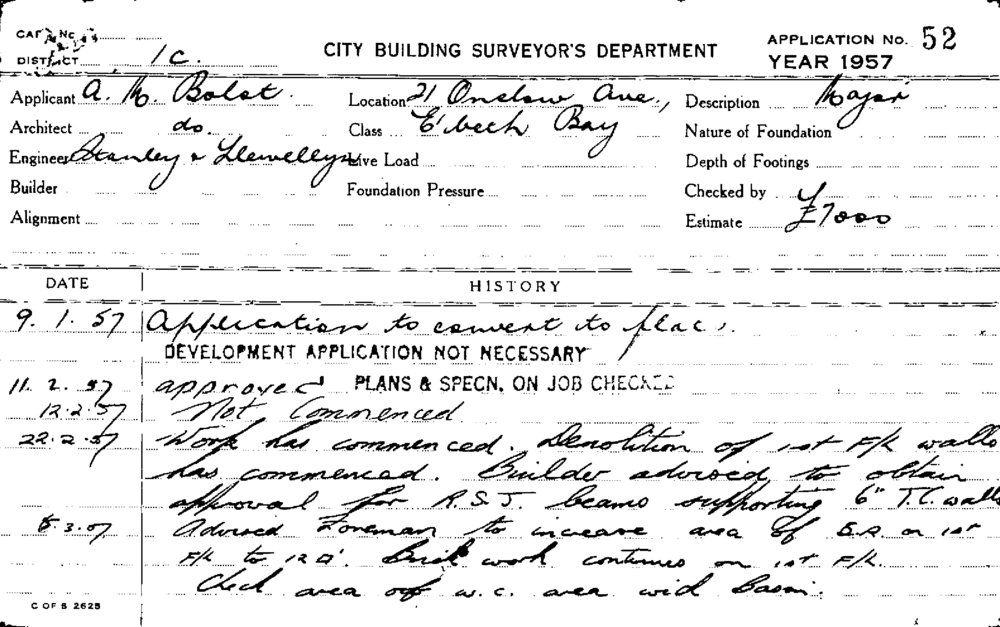 CITY BUILDING SURVEYOR'S DEPARTMENT
APPLICATION No. 52
YEAR 1957
DISTRICT 1C.
Applicant A. M. Bolot.
Location 21 Onslow Ave.,
Description Major
Architect do.
Class E'beth Bay
Nature of Foundation
Engineer Stanley & Llewellyn
Live Load
Depth of Footings
Builder
Foundation Pressure
Checked by
Alignment
Estimate £7000
DATE HISTORY
9.1.57 Application to convert to flats.
DEVELOPMENT APPLICATION NOT NECESSARY
11.2.57 approved PLANS & SPECN. ON JOB CHECKED
12.2.57 Not Commenced
22.2.57 Work has commenced. Demolition of 1st F/R walls
has commenced. Builder advised to obtain
approval for R.S.J. beams supporting 6" T.C. walls
5.3.57 Advised Foreman to increase area of on 1st
F/R to 12 □'. Brick work continues on 1st F/R.
Check area of w.c. area with Basin.
C OF S 2625